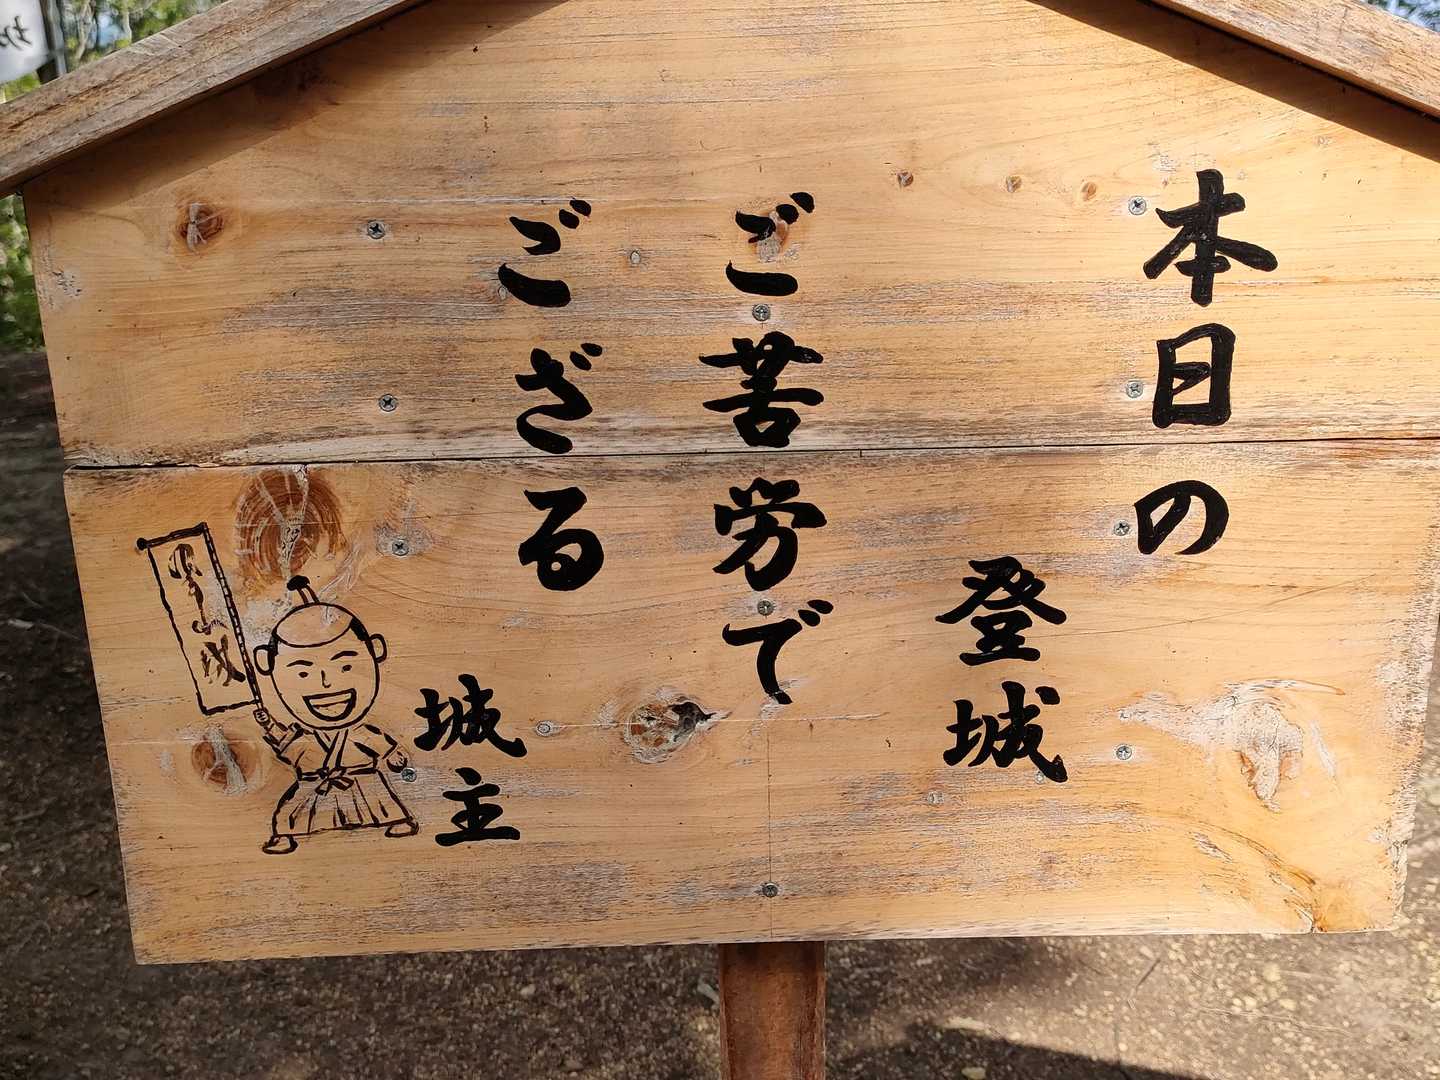 本日の
登城
ご苦労で
ござる
城主